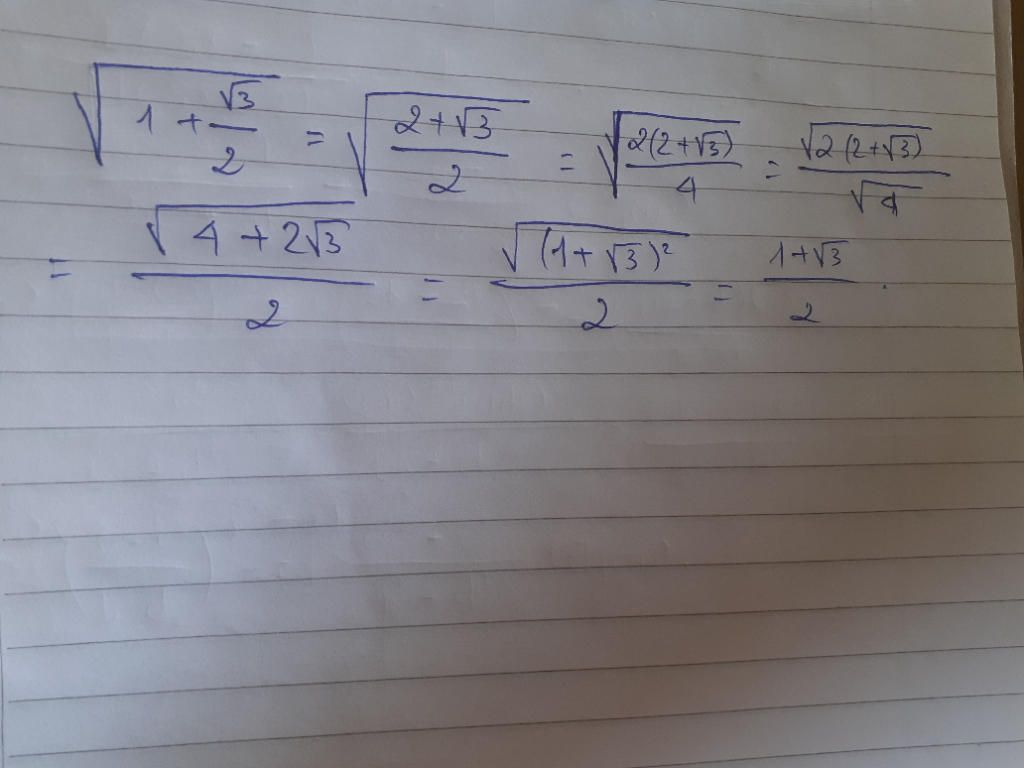 √(1 + √3/2) = √((2+√3)/2) = √(2(2+√3)/4) = √(2(2+√3))/√4
= √(4+2√3)/2 = √((1+√3)²)/2 = (1+√3)/2 .